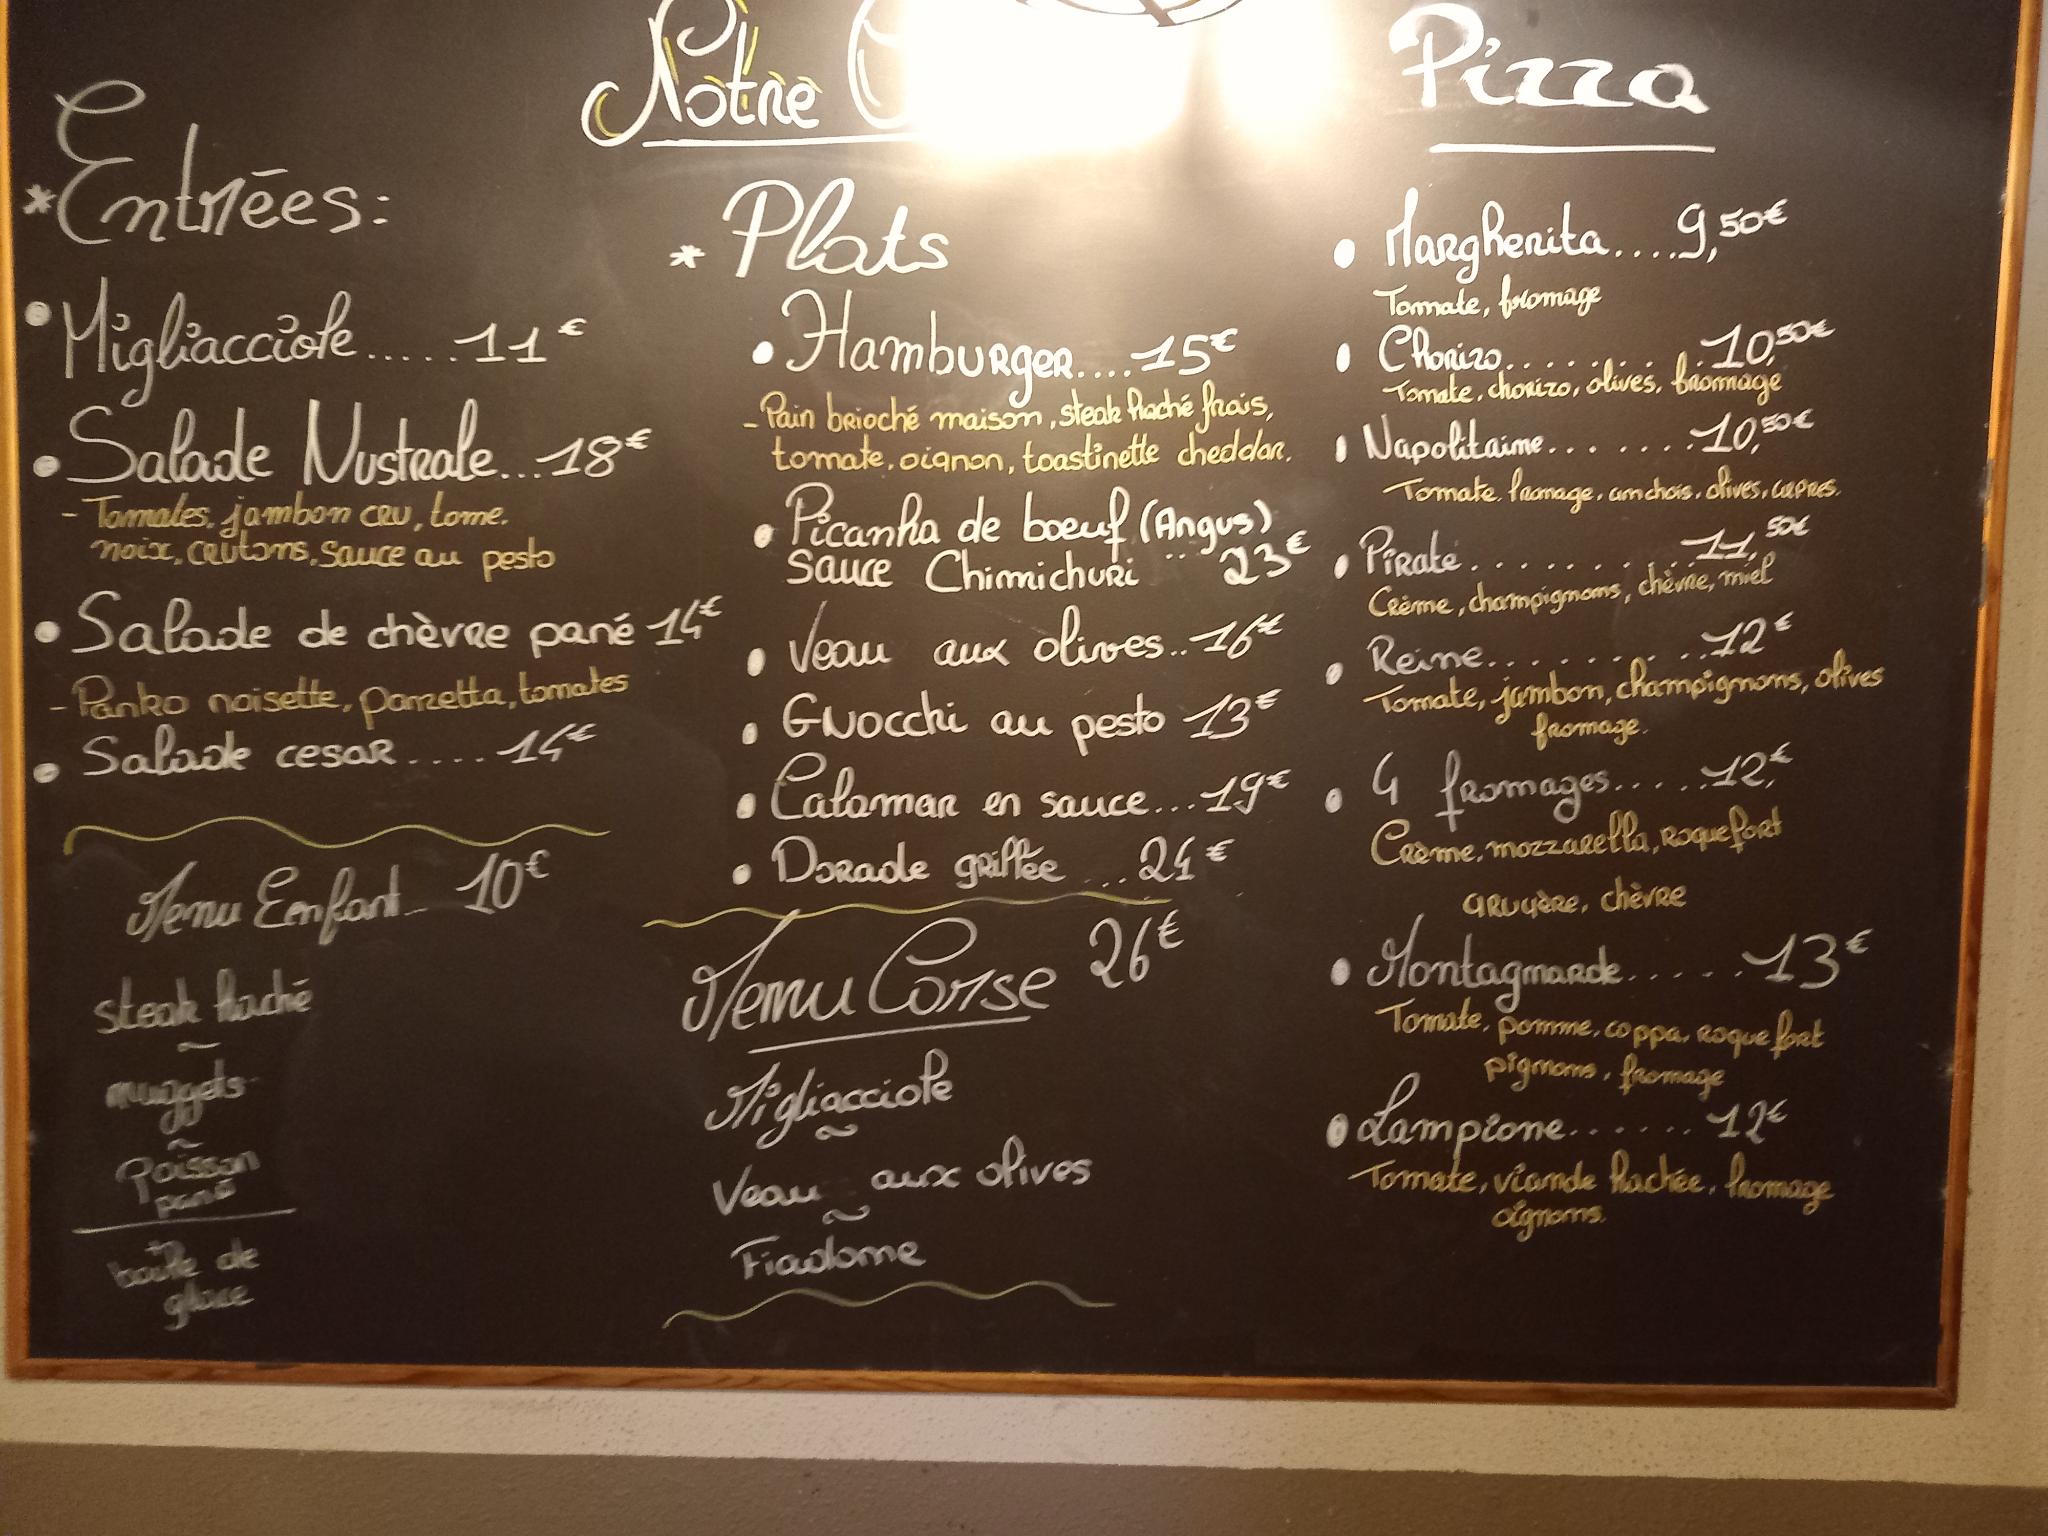 Notre
* Entrées:
• Migliacciole.....11€
• Salade Nustrale...18€
- Tomates, jambon cru, tome.
noix, crutons, sauce au pesto
• Salade de chèvre pané 14€
- Panko noisette, panzetta, tomates
• Salade cesar....14€
Menu Enfant... 10€
steak haché
~
nuggets
~
Poisson
pané
boule de
glace
* Plats
• Hamburger....15€
- Pain brioché maison, steak haché frais,
tomate, oignon, toastinette cheddar.
• Picanha de boeuf (Angus)
Sauce Chimichuri ... 23€
• Veau aux olives..16€
• Gnocchi au pesto 13€
• Calamar en sauce...19€
• Dorade grillée ...24€
Menu Corse 26€
Migliacciole
~
Veau aux olives
~
Fiadone
Pizza
• Margherita....9,50€
Tomate, fromage
• Chorizo..........10,50€
Tomate, chorizo, olives, fromage
• Napolitaine.......10,50€
Tomate, fromage, anchois, olives, capres.
• Pirate..........11,50€
Crème, champignons, chèvre, miel
• Reine..........12€
Tomate, jambon, champignons, olives
fromage.
• 4 fromages.....12,€
Crème, mozzarella, roquefort
gruyère, chèvre
• Montagnarde.....13€
Tomate, pomme, coppa, roquefort
pignons, fromage
• Lampione......12€
Tomate, viande hachée, fromage
oignons.